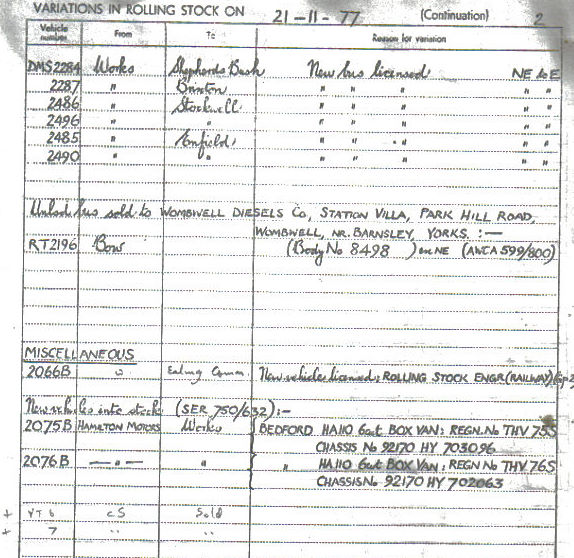 VARIATIONS IN ROLLING STOCK ON 21-11-77 (Continuation) 2
Vehicle number From To Reason for variation
DMS2284 Works Shepherds Bush New bus licensed NE to E
2287 " Brixton " " " " "
2486 " Stockwell " " " " "
2496 " " " " " " "
2485 " Enfield " " " " "
2490 " " " " " " "
Unlicd bus sold to WOMBWELL DIESELS Co, STATION VILLA, PARK HILL ROAD,
WOMBWELL, NR. BARNSLEY, YORKS. :—
RT2196 Bow (Body No 8498 ) ex NE (AWCA 599/800)
MISCELLANEOUS
2066B W Ealing Comm. New vehicle licensed; ROLLING STOCK ENGR (RAILWAY) Gp2
New vehicles into stock (SER 750/632):-
2075B HAMILTON MOTORS Works BEDFORD HA110 6cwt BOX VAN: REGN. No THV 75S
CHASSIS No 92170 HY 703096
2076B —"— " " HA110 6cwt BOX VAN: REGN No THV 76S
CHASSIS No 92170 HY 702063
+ YT 6 CS Sold
+ 7 " "